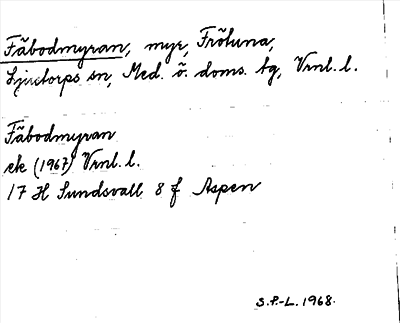 Fäbodmyran, myr, Frötuna,
Ljustorps sn, Med. ö. doms. tg, Vrnl. l.
Fäbodmyran
ek (1967) Vrnl. l.
17 H Sundsvall 8 f Aspen
S.P.-L. 1968.